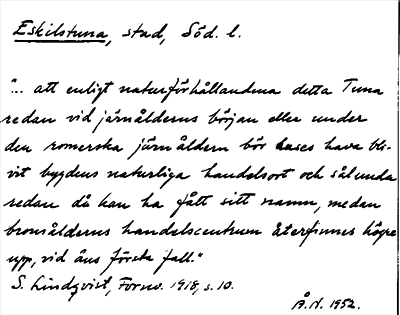 Eskilstuna, stad, Söd. l.
"... att enligt naturförhållandena detta Tuna
redan vid järnålderns början eller under
den romerska järnåldern bör anses hava bli-
vit bygdens naturliga handelsort och sålunda
redan då kan ha fått sitt namn, medan
bronsålderns handelscentrum återfinnes högre
upp, vid åns första fall."
S. Lindqvist, Fornv. 1918, s. 10.
Å.N. 1952.